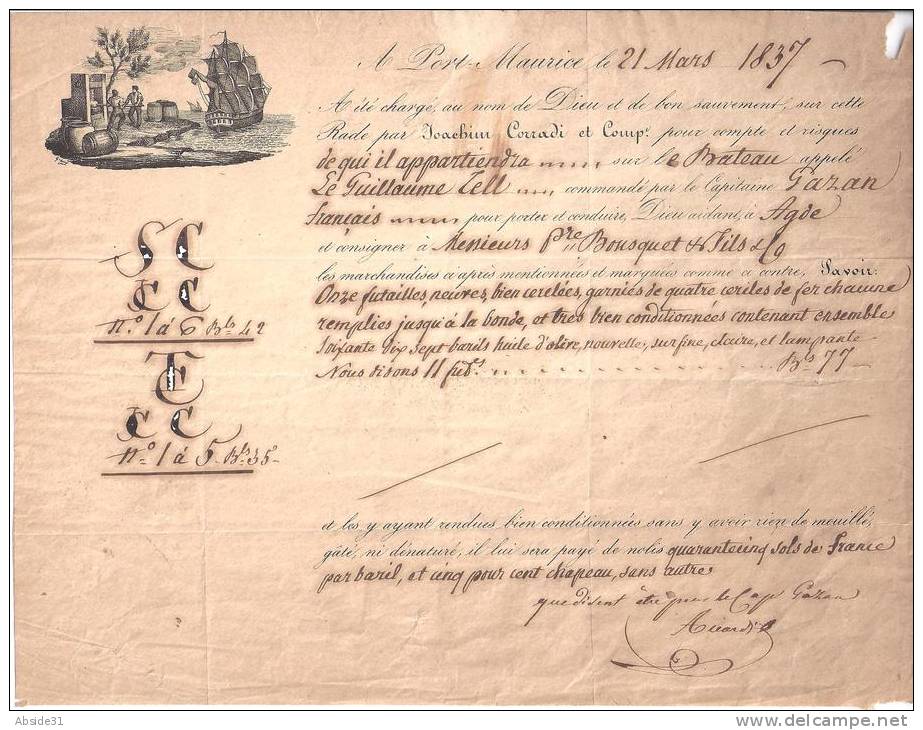 A Port-Maurice le 21 Mars 1837
A été chargé, au nom de Dieu et de bon sauvement, sur cette
Rade par Joachim Corradi et Comp.e pour compte et risques
de qui il appartiendra sur le Bateau appelé
Le Guillaume Tell commandé par le Capitaine Gazan
français pour porter et conduire, Dieu aidant, à Agde
et consigner à Messieurs Pre Bousquet & fils & Co
les marchandises ci après mentionnées et marquées comme ci contre, Savoir:
Onze futailles, neuves, bien cerclées, garnies de quatre cercles de fer chacune
remplies jusqu'à la bonde, et très bien conditionnées contenant ensemble
Soixante dix sept barils huile d'olive, nouvelle, surfine, claire, et lampante
Nous disons 11 fut.s Bs 77
S C
C C
n.o 1 à 6 Bls 42
T
C
C C
n.o 1 à 5 Bls 35
et les y ayant rendues bien conditionnées sans y avoir rien de mouillé,
gâté, ni dénaturé, il lui sera payé de nolis quarante cinq sols de france
par baril, et cinq pour cent chapeau, sans autre
que disent être pour le Cap Gazan
Abside31
www.delcampe.net